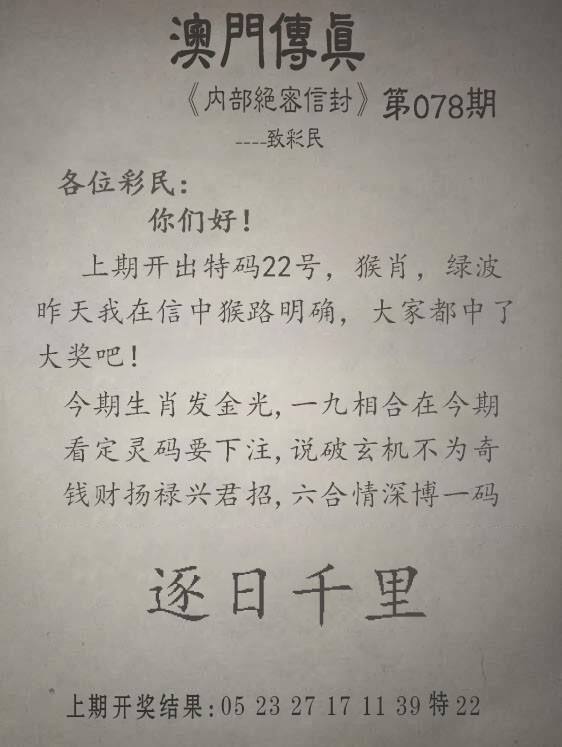 澳門傳眞
《内部絕密信封》第078期
----致彩民
各位彩民：
你们好！
上期开出特码22号，猴肖，绿波
昨天我在信中猴路明确，大家都中了
大奖吧！
今期生肖发金光,一九相合在今期
看定灵码要下注,说破玄机不为奇
钱财扬禄兴君招,六合情深博一码
逐日千里
上期开奖结果:05 23 27 17 11 39 特 22